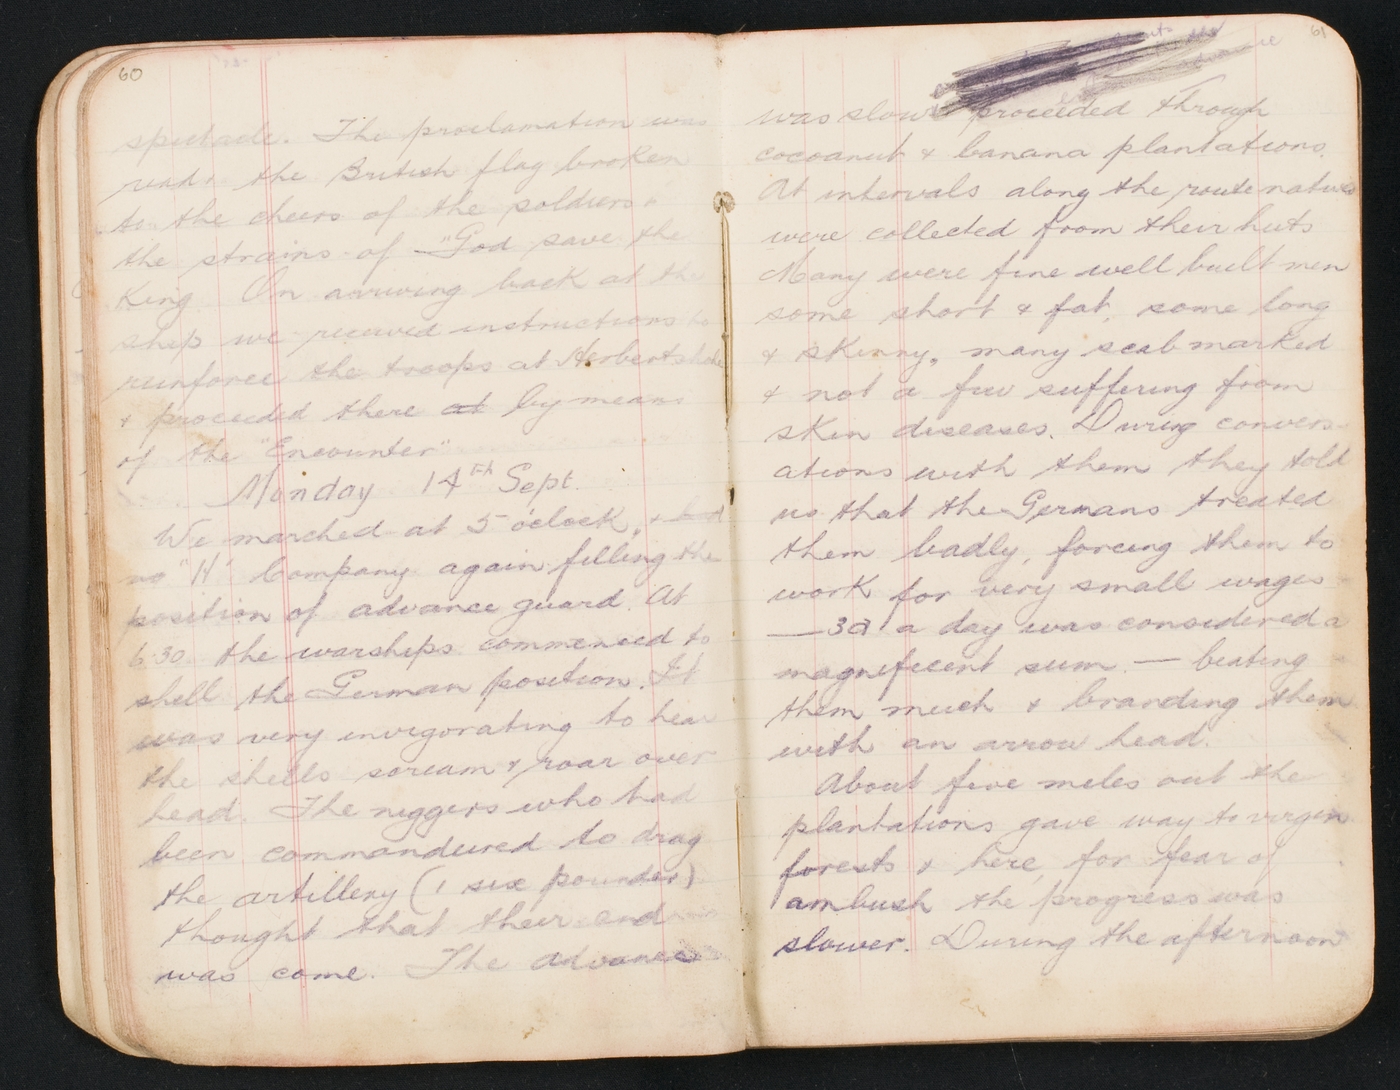 60
spectacle. The proclamation was
read & the British flag broken
to the cheers of the soldiers &
the strains of "God save the
King. On arriving back at the
ship we received instructions to
reinforce the troops at Herbertshohe
& proceeded there at by means
of the "Encounter"
Monday 14th Sept.
We marched at 5 o'clock, &
us "H" Company again filling the
position of advance guard. At
6.30 the warships commenced to
shell the German position. It
was very invigorating to hear
the shells scream & roar over
head. The niggers who had
been commandeered to drag
the artillery (1 six pounder)
thought that their end
was come. The advance
61
was slow & proceeded through
cocoanut & banana plantations.
At intervals along the route natives
were collected from their huts
Many were fine well built men
some short & fat, some long
& skinny, many scab marked
& not a few suffering from
skin diseases. During convers-
ations with them they told
us that the Germans treated
them badly, forcing them to
work for very small wages
— 3d a day was considered a
magnificent sum. — beating
them much & branding them
with an arrow head.
About five miles out the
plantations gave way to virgin
forests & here, for fear of
ambush the progress was
slower. During the afternoon